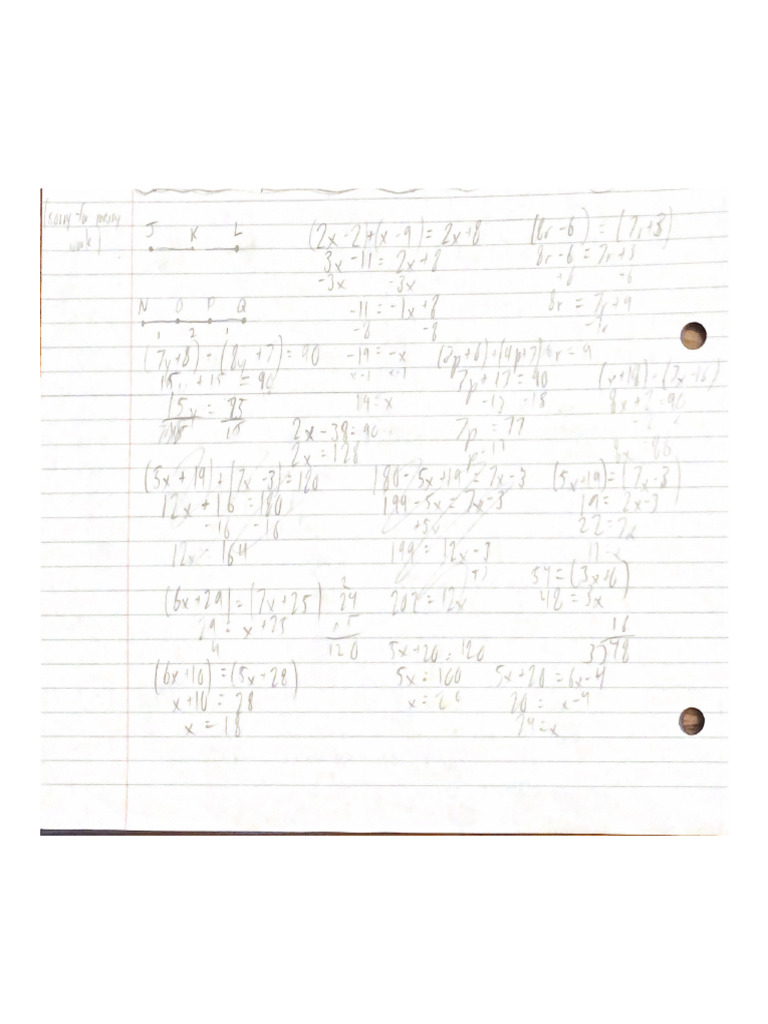 (sorry for messy
work)
J K L
(2x-2)+(x-9)=2x+8
3x-11=2x+8
-3x -3x
-11=-1x+8
-8 -8
-19=-x
19=x
(8r-6)=(7r+3)
8r-6=7r+3
+6 -6
8r=7r+9
-7r
r=9
N O P Q
1 2 1
(7y+8)-(8y+7)=90
15y+15=90
15y=
2x-38=90
2x=128
(3p+6)+(4p+7)
7p+13=90
-13 -13
7p=77
p=11
(x+18)-(7x-16)
8x+2=90
8x=86
(5x+19)+(7x-3)=180
12x+16=180
-16 -16
12x 164
180-5x+19=7x-3
199-5x=7x-3
+5x
199=12x-3
+3
202=12x
(5x+19)=(7x-3)
19=2x-3
22=2x
11=x
54=(3x+6)
48=3x
16
3)48
(6x+29)=(7x+25)
29=x+25
4
2
24
x5
120
5x+20=120
5x=100
x=20
5x+20=6x-4
20=x-4
24=x
(6x+10)=(5x+28)
x+10=28
x=18